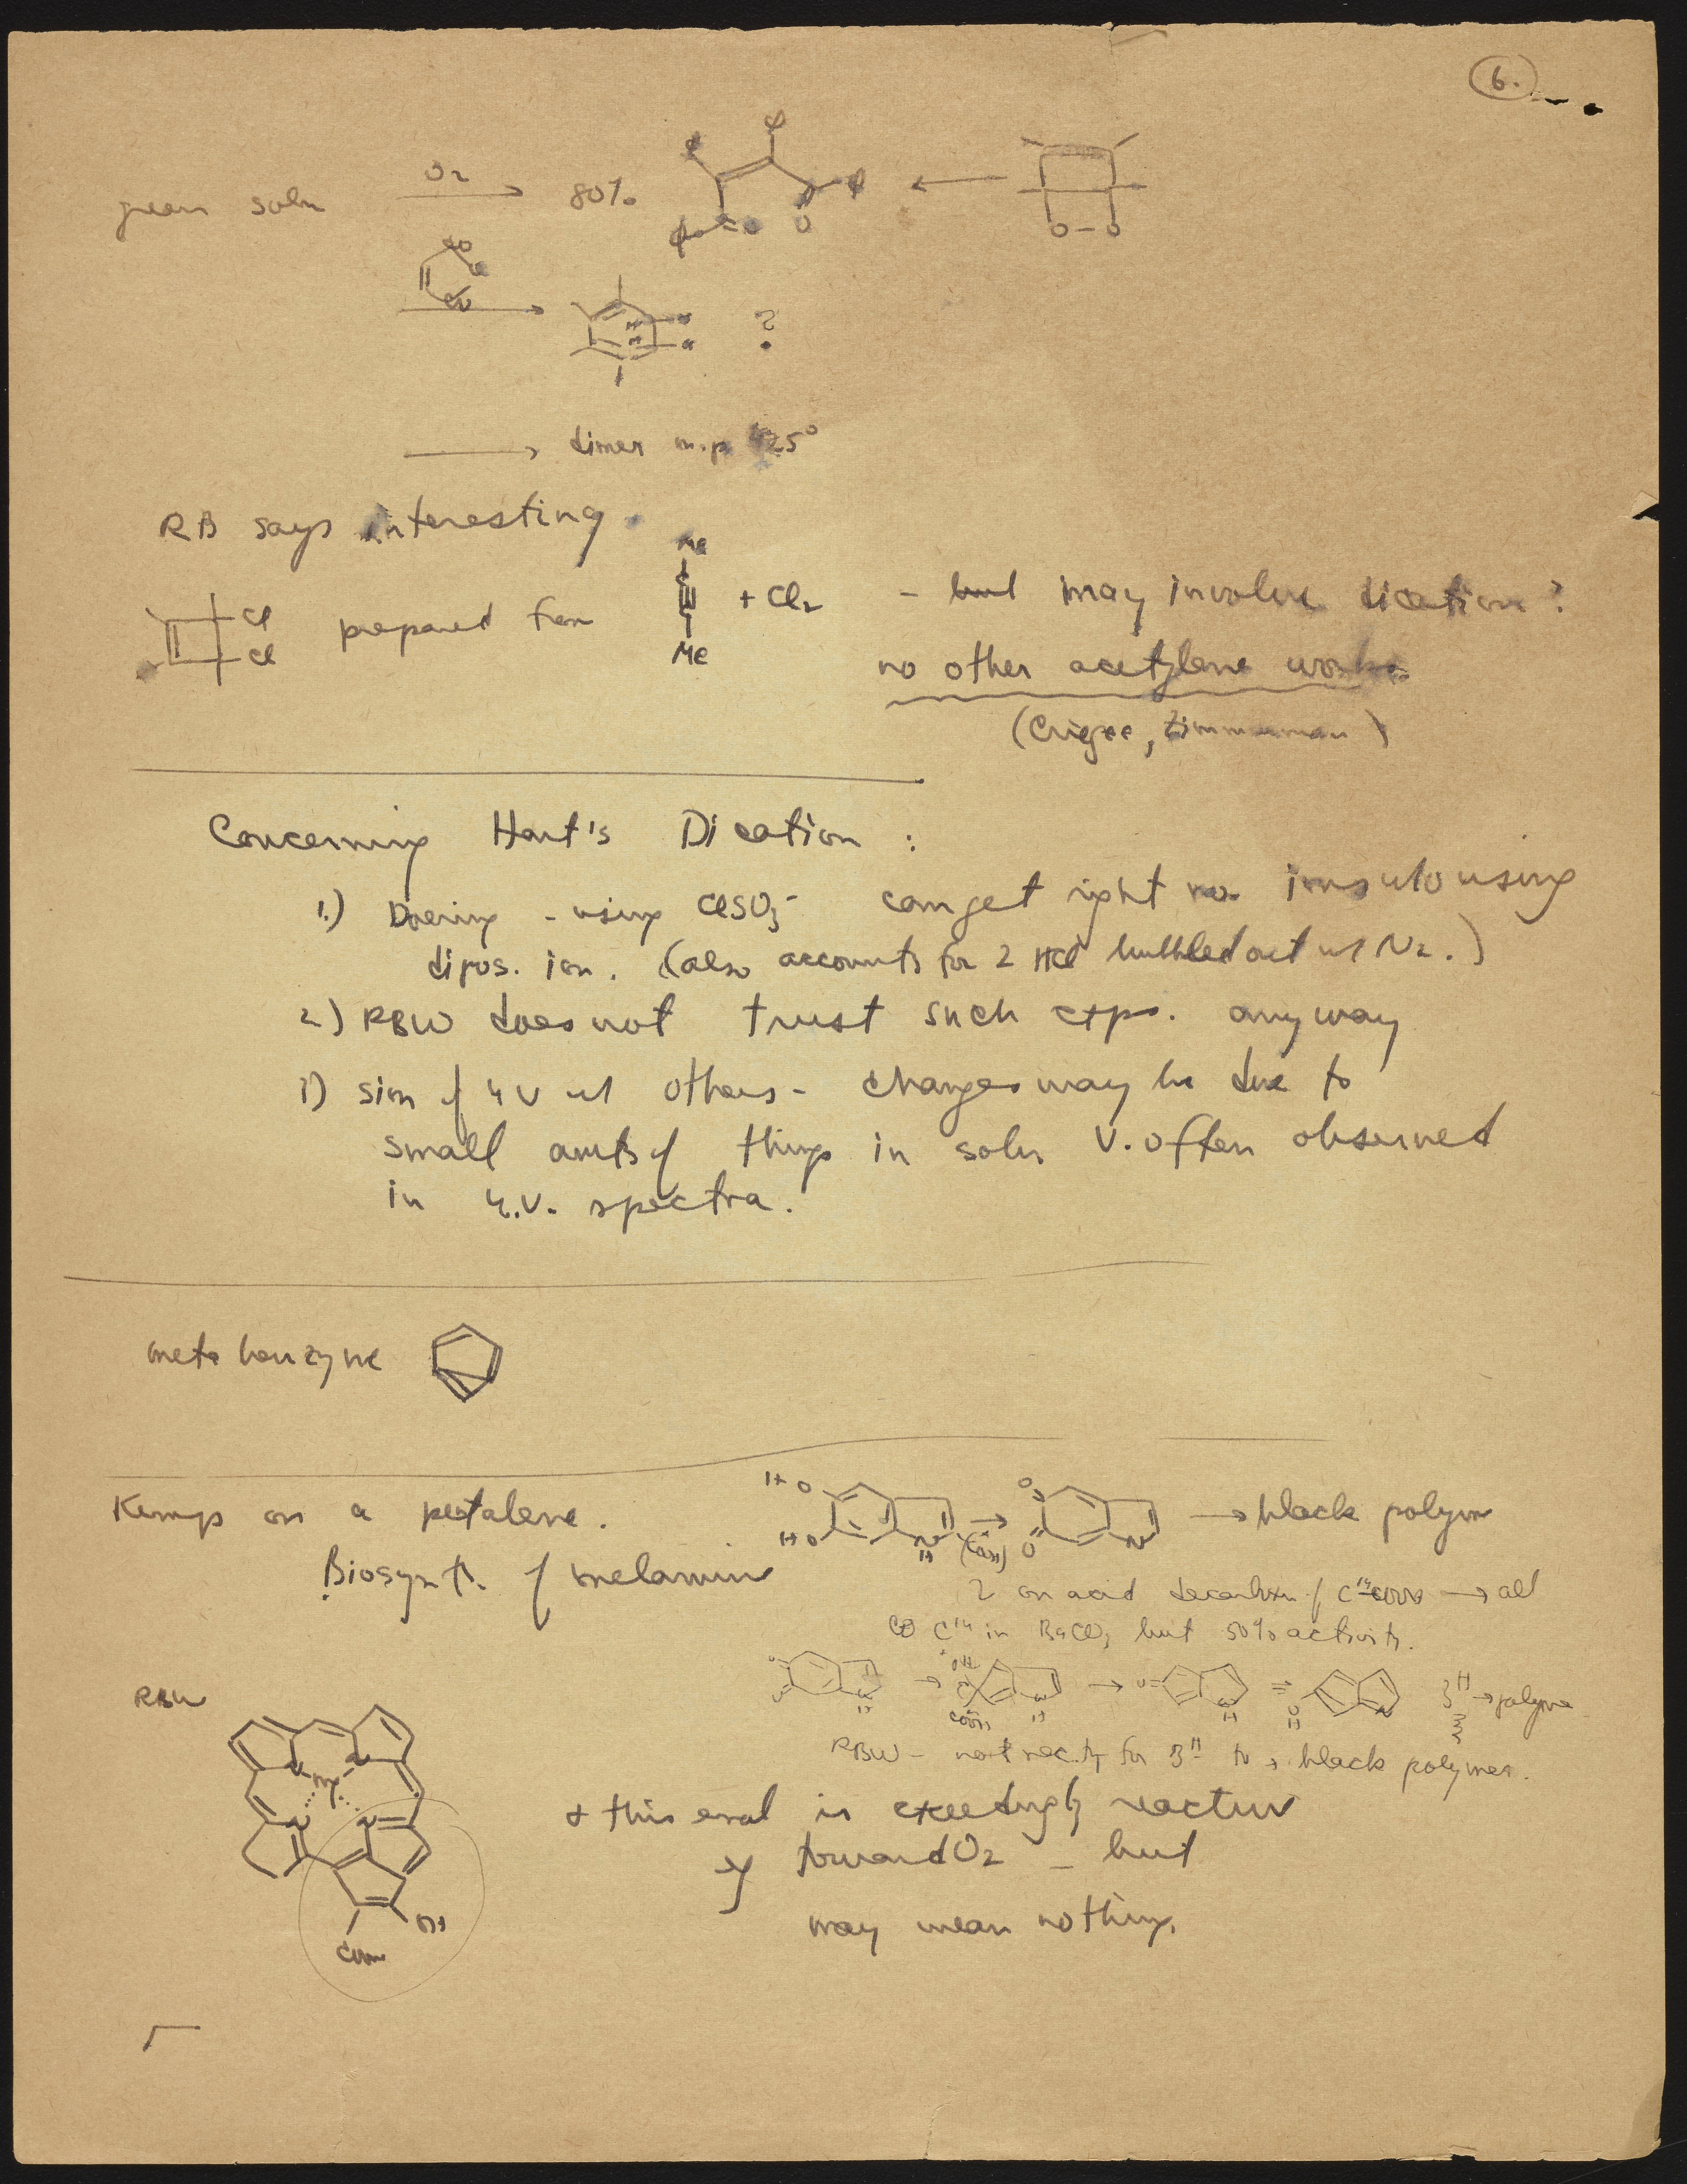 6.
green soln O2 → 80%
O O
CN
?
→ dimer m.p. 425°
RB says interesting.
Cl
Cl
prepared from Me C≡C Me + Cl2 - but may involve dication?
no other acetylene works
(Criegee, Zimmerman)
Concerning Hart's Dication :
1.) Doering - using ClSO3- can get right no. ions ulousing
dipos. ion. (also accounts for 2 HCl bubbled out w/ N2.)
2) RBW does not trust such exps. anyway
3) sim of u v w/ others - changes may be due to
small amts of things in soln v. often observed
in u.v. spectra.
meta benzyne
Kemp on a pentalene.
HO HO N H (COOH) → O O N → black polym
Biosynth. of melamin
2 on acid decarboxn of C14 COOH → all
C14 in BaCO3 but 50% activity.
OH COOH N H → O N H ⇌ HO N 3H → polymer
RBW - not nec. for 3H to → black polymer.
RBW
N N Mg N N
OH
COOMe
& this enol is exceedingly reactive
toward O2 - but
may mean nothing.